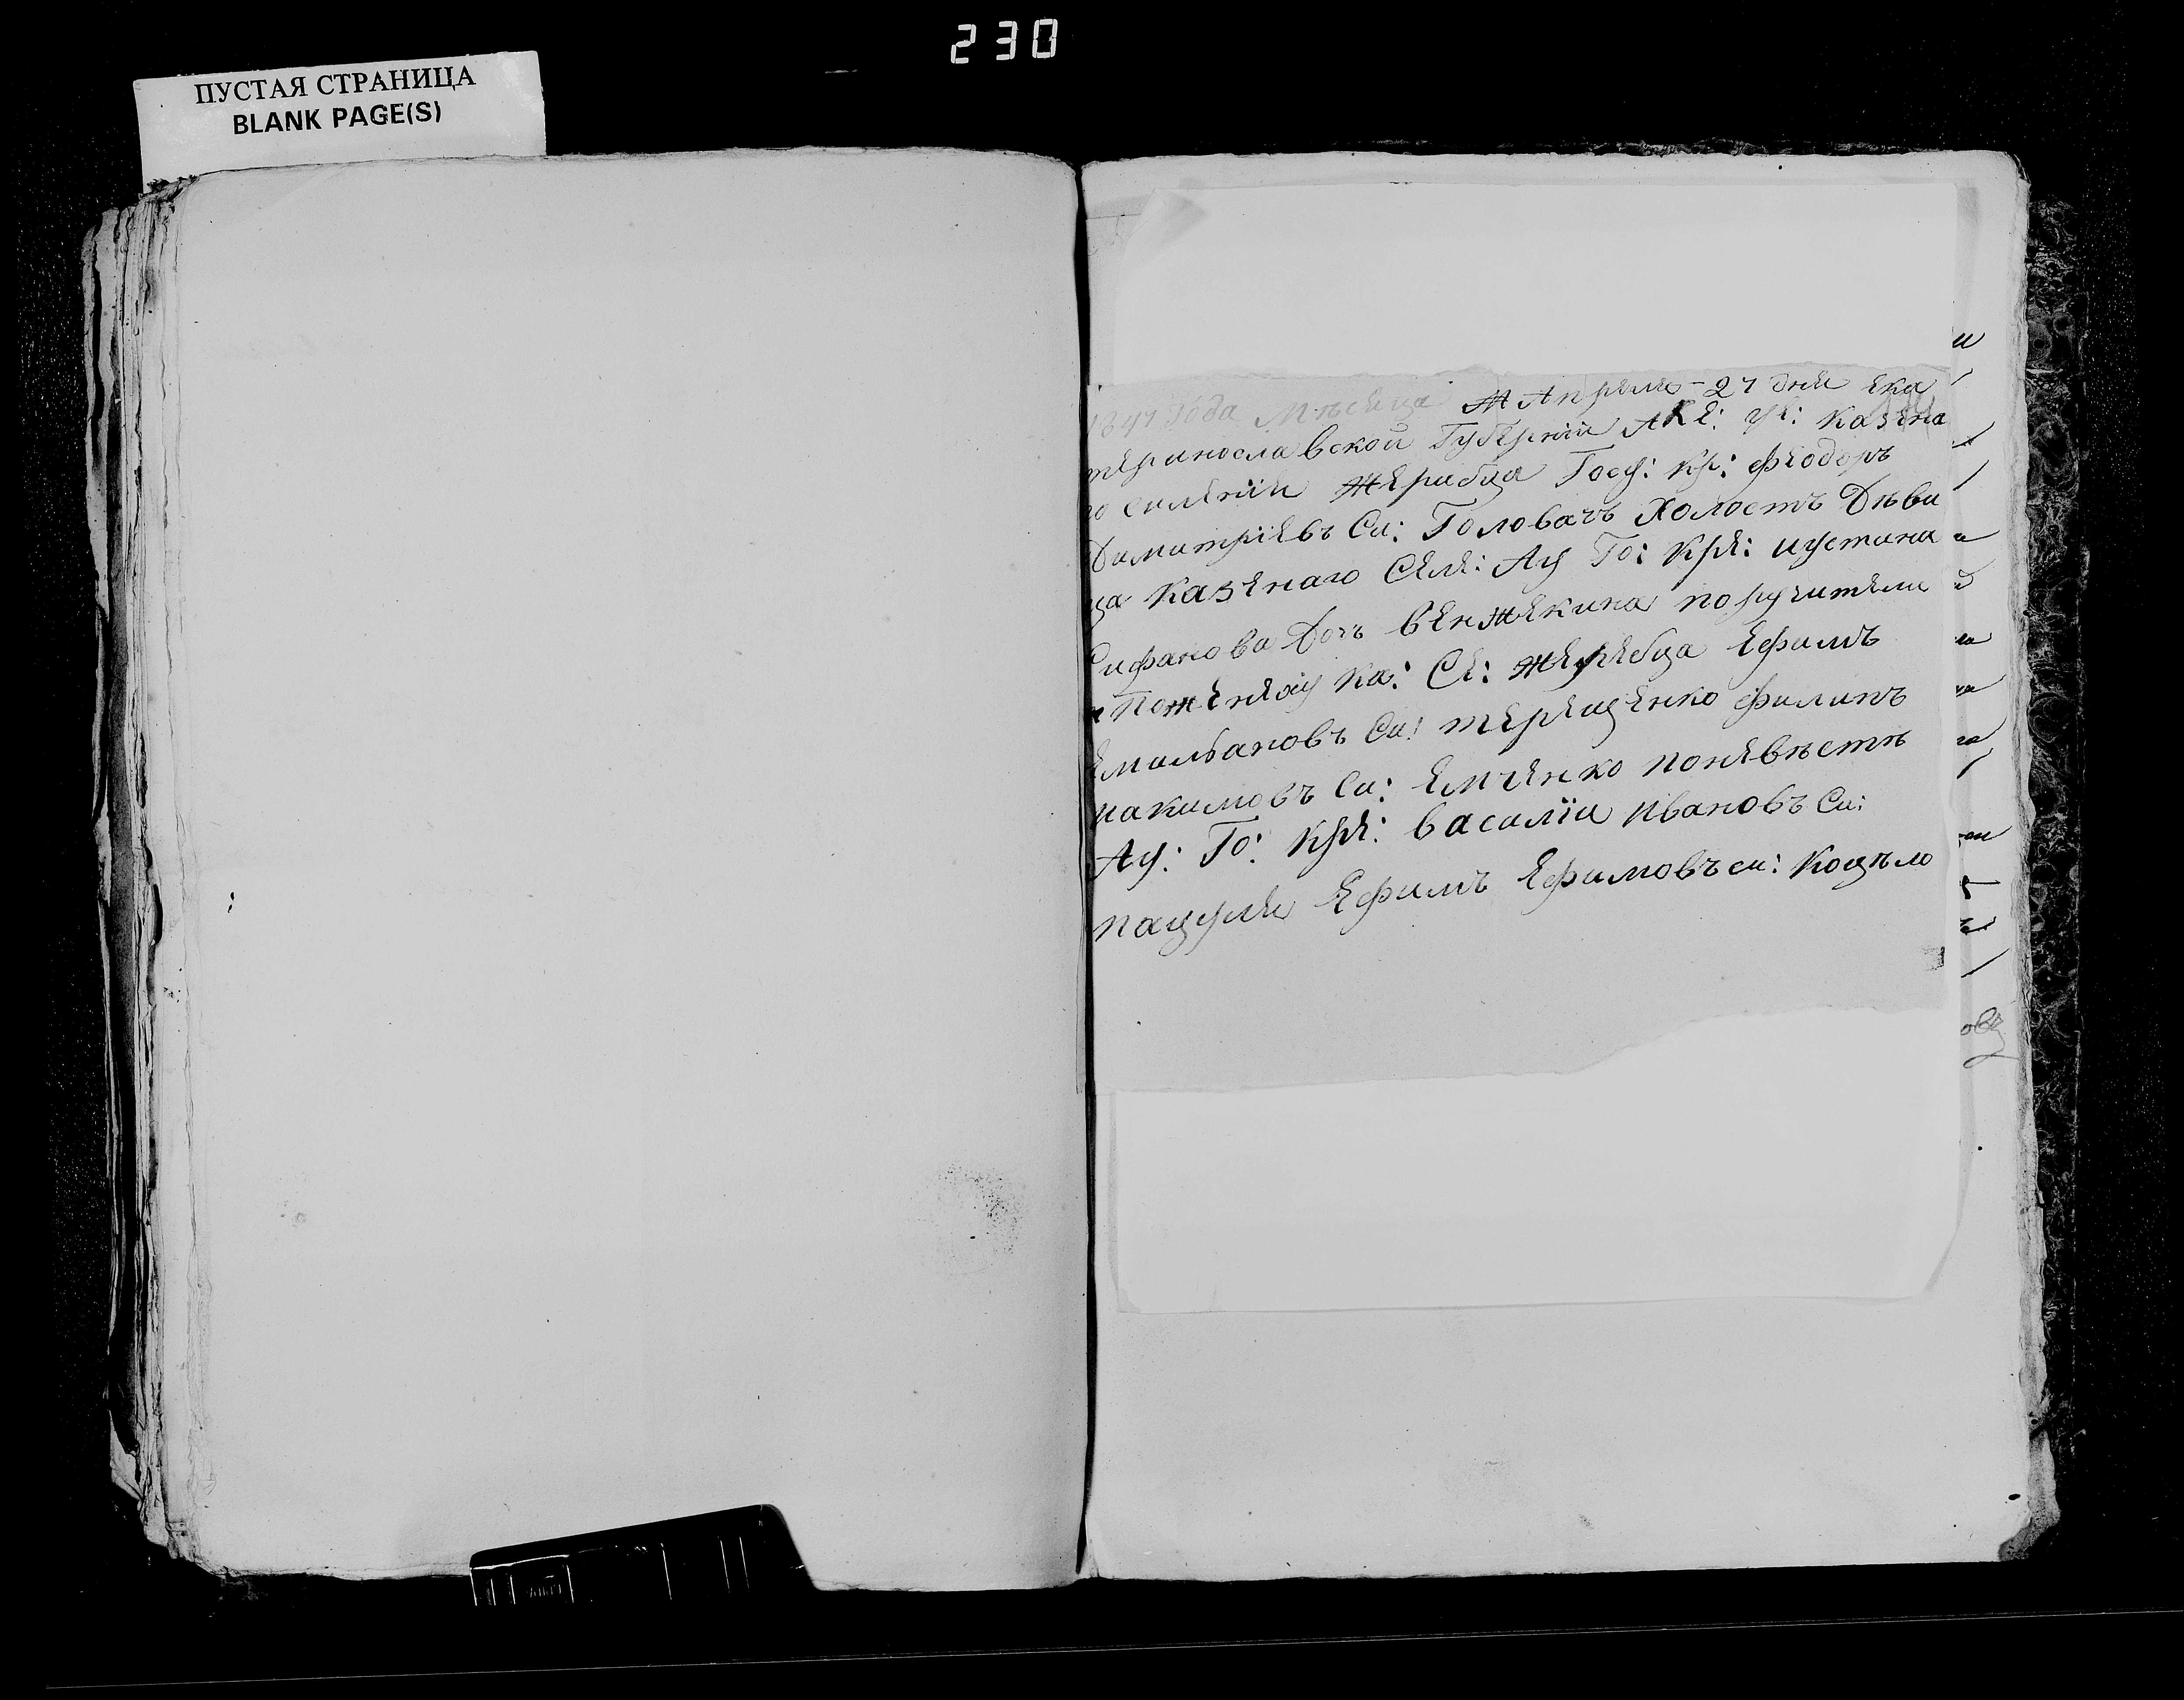 230
ПУСТАЯ СТРАНИЦА
BLANK PAGE(S)
1847 Года Мѣсяца Апреля - 27 дня ека
териносла вской Губерніи Але: Уе: казена
го силенія Жеребца Госу: кр: Феодоръ
Димитріевъ Си: Головачъ Холостъ Дѣви
ца казенаго Селе: Ау Го: кре: иустина
Сифанова Дочъ венжекина поручители
поженяху ка: Се: жеребца Ефимъ
Емильановъ Си: терещенко Филипъ
иакимовъ Си: Емченко поневѣстѣ
Ау: Го: кре: василіи Ивановъ Си:
пацуля Ефимъ Ефимовъ си: Коцѣло